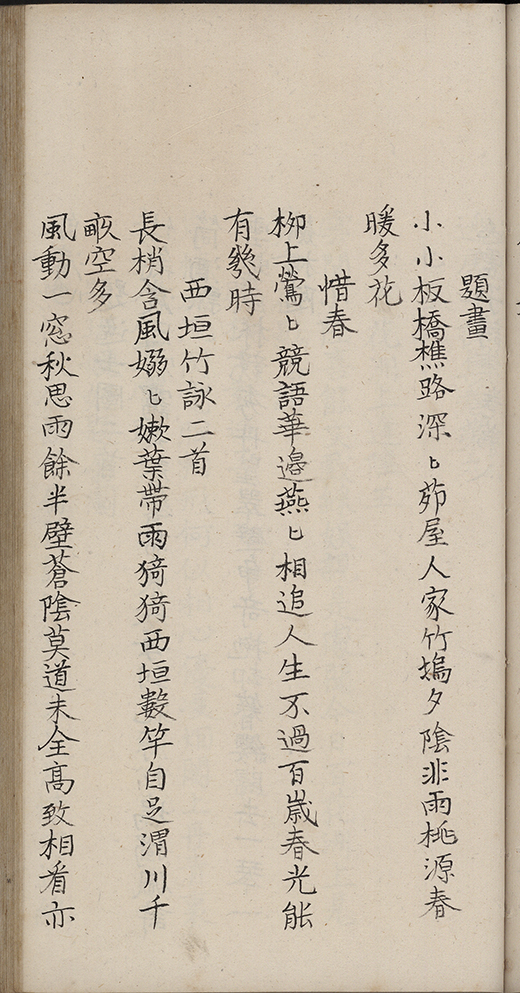 題畫
小小板橋樵路深〻茆屋人家竹塢夕陰非雨桃源春
暖多花
惜春
栁上鶯〻競語華邉燕〻相追人生不過百歲春光能
有幾時
西垣竹詠二首
長梢含風嫋〻嫩葉帶雨猗猗西垣數竿自足渭川千
畝空多
風動一窓秋思雨餘半壁蒼陰莫道未全髙致相看亦